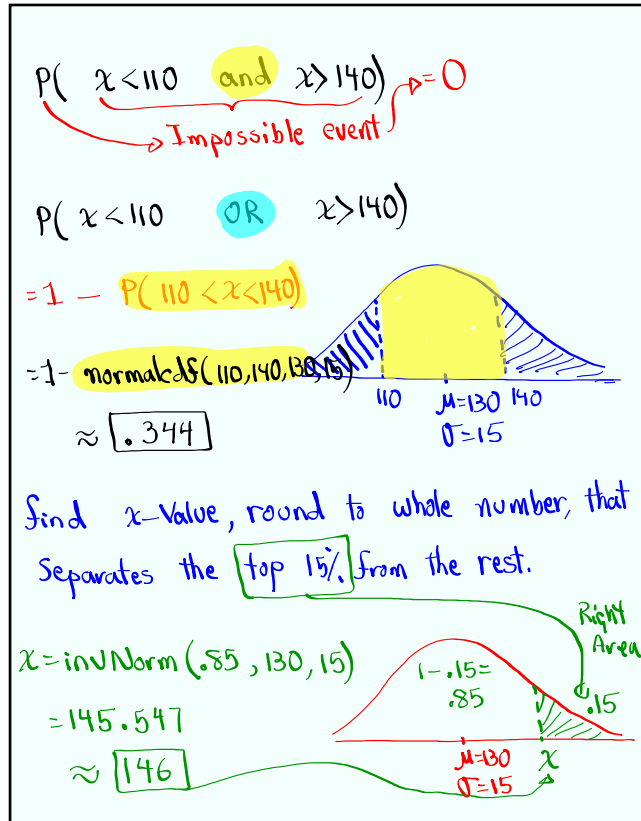 P( x<110 and x>140) = 0
Impossible event
P( x<110 OR x>140)
=1 - P( 110 <x<140)
=1- normalcdf(110,140,130,15)
≈ .344
110 μ=130 140
σ=15
find x-Value, round to whole number, that
Separates the top 15% from the rest.
Right
Area
x=invNorm(.85, 130, 15)
1-.15=
.85
.15
=145.547
≈ 146
μ=130 x
σ=15